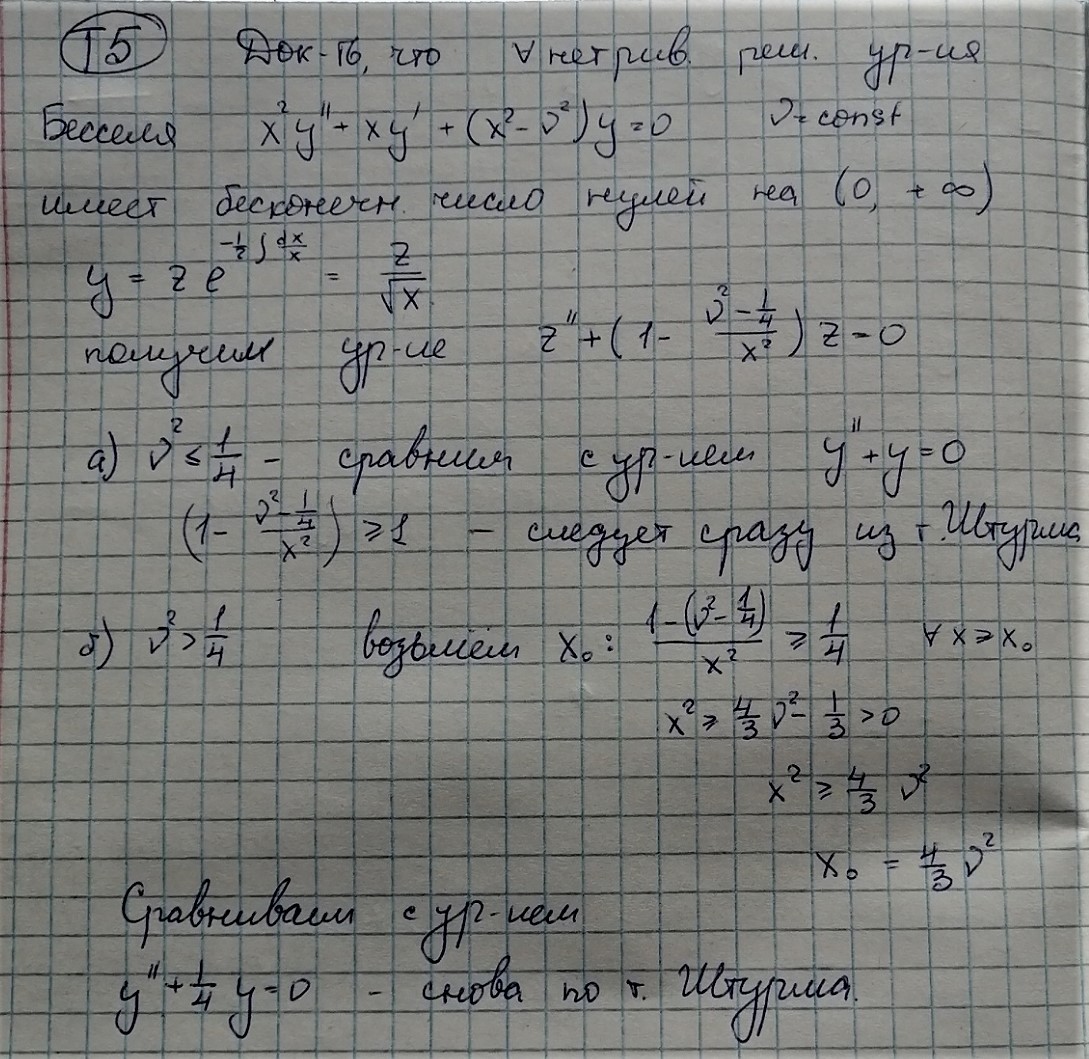 Т5 Док-ть, что ∀ нетрив. реш. ур-ия
Бесселя x²y'' + xy' + (x² - ν²)y = 0 ν = const
имеет бесконечн. число нулей на (0, +∞)
y = z e^{-\frac{1}{2}∫\frac{dx}{x}} = \frac{z}{\sqrt{x}}
получим ур-ие z'' + (1 - \frac{ν² - \frac{1}{4}}{x²}) z = 0
а) ν² ≤ \frac{1}{4} - сравним с ур-ием y'' + y = 0
(1 - \frac{ν² - \frac{1}{4}}{x²}) ≥ 1 - следует сразу из т. Штурма
б) ν² > \frac{1}{4} возьмём x₀: \frac{1 - (ν² - \frac{1}{4})}{x²} ≥ \frac{1}{4} ∀ x ≥ x₀
x² ≥ \frac{4}{3} ν² - \frac{1}{3} > 0
x² ≥ \frac{4}{3} ν²
x₀ = \frac{4}{3} ν²
Сравниваем с ур-ием
y'' + \frac{1}{4} y = 0 - снова по т. Штурма.